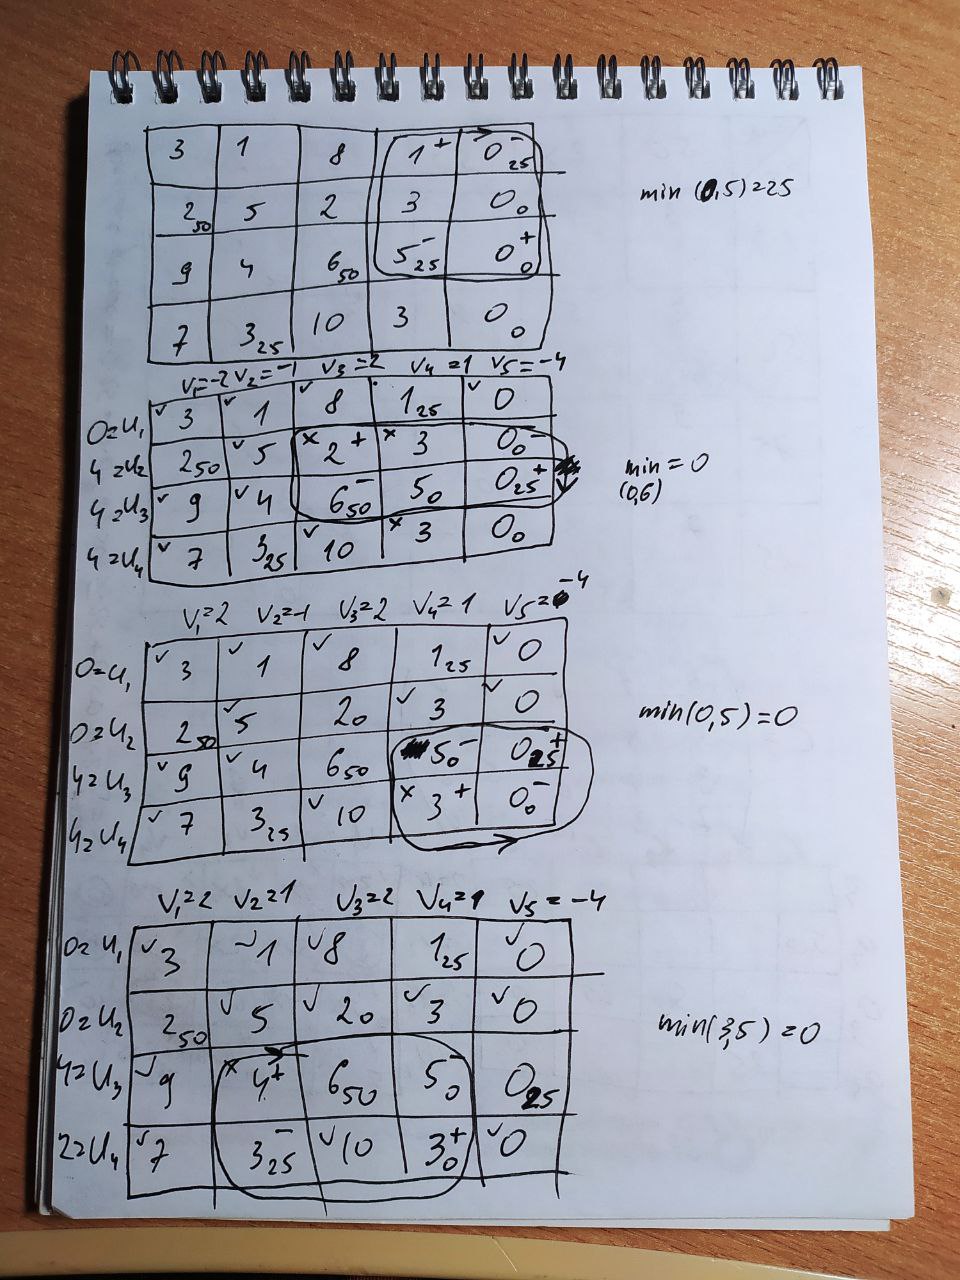 3 1 8 1⁺ 0⁻₂₅
2₅₀ 5 2 3 0₀
9 4 6₅₀ 5⁻₂₅ 0⁺₀
7 3₂₅ 10 3 0₀
min (0,5)=25
V₁=-2 V₂=-1 V₃=2 V₄=1 V₅=-4
0=U₁ ✓3 ✓1 ✓8 1₂₅ ✓0
4=U₂ 2₅₀ ✓5 ×2⁺ ×3 0₀⁻
4=U₃ ✓9 ✓4 6₅₀⁻ 5₀ 0₂₅⁺
4=U₄ ✓7 3₂₅ ✓10 ×3 0₀
min = 0
(0,6)
V₁=2 V₂=-1 V₃=2 V₄=1 V₅=-4
0=U₁ ✓3 ✓1 ✓8 1₂₅ ✓0
0=U₂ 2₅₀ ✓5 2₀ ✓3 ✓0
4=U₃ ✓9 ✓4 6₅₀ 5₀⁻ 0₂₅⁺
4=U₄ ✓7 3₂₅ ✓10 ×3⁺ 0₀⁻
min(0,5)=0
V₁=2 V₂=1 V₃=2 V₄=1 V₅=-4
0=U₁ ✓3 ✓1 ✓8 1₂₅ ✓0
0=U₂ 2₅₀ ✓5 ✓2₀ ✓3 ✓0
4=U₃ ✓9 ×4⁺ 6₅₀ 5₀⁻ 0₂₅
2=U₄ ✓7 3₂₅⁻ ✓10 3₀⁺ ✓0
min(3,5)=0